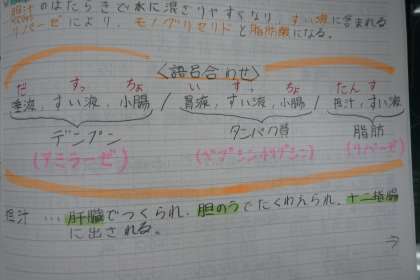 胆汁のはたらきで水に混ざりやすくなり、すい液に含まれる
リパーゼにより、モノグリセリドと脂肪酸になる。
〈語呂合わせ〉
だ すっ ちょ い すっ ちょ たん す
唾液、すい液、小腸 / 胃液、すい液、小腸 / 胆汁、すい液
デンプン タンパク質 脂肪
(アミラーゼ) (ペプシン、トリプシン) (リパーゼ)
胆汁 … 肝臓でつくられ、胆のうでたくわえられ、十二指腸
に出される。
→